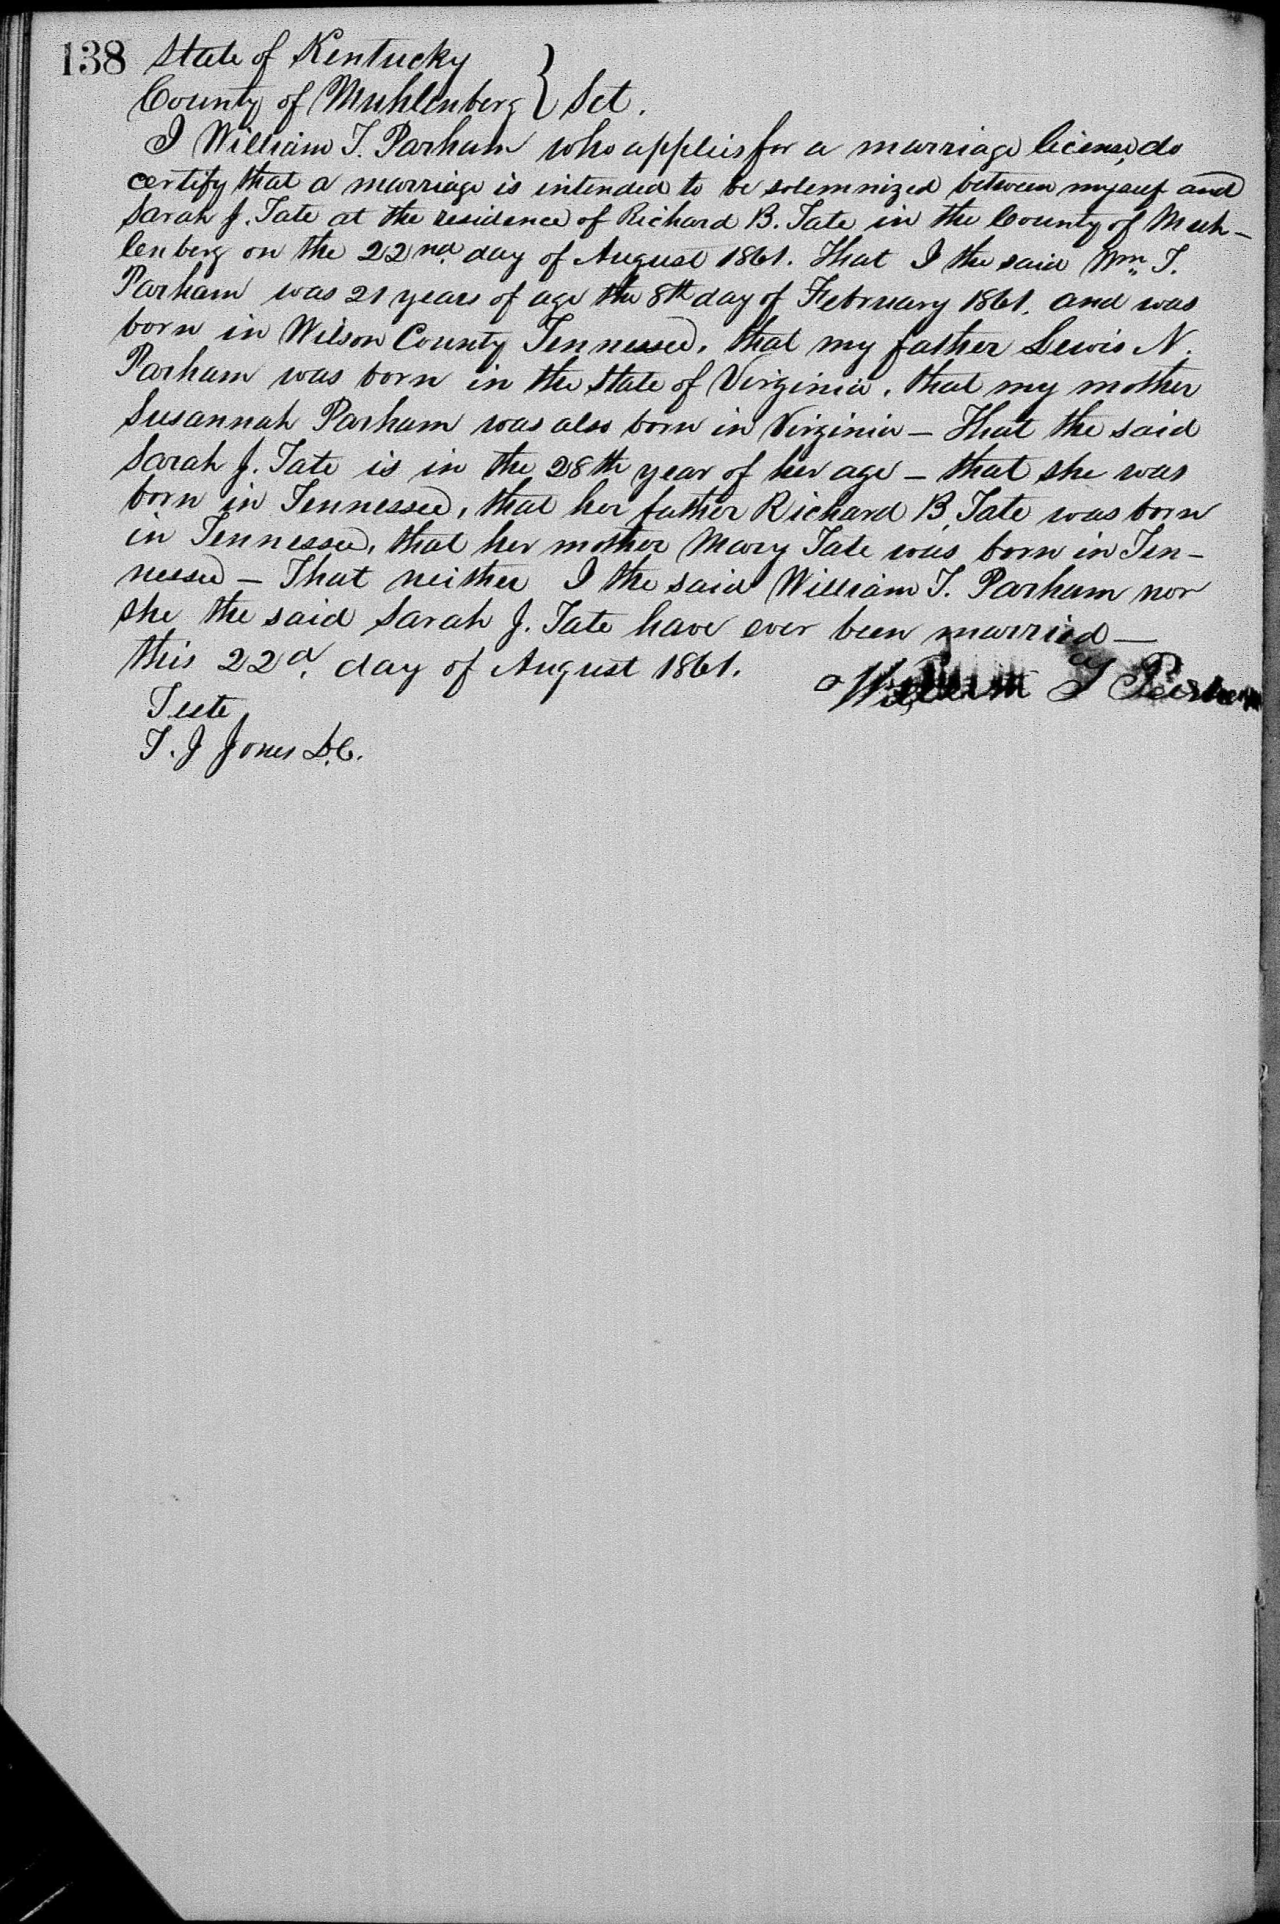 138 State of Kentucky
County of Muhlenberg } Sct.
I William T. Parham who applies for a marriage license, do
certify that a marriage is intended to be solemnized between myself and
Sarah J. Tate at the residence of Richard B. Tate in the County of Muh-
lenberg on the 22nd. day of August 1861. That I the said Wm. T.
Parham was 21 years of age the 8th day of February 1861. and was
born in Wilson County Tennessee, that my father Lewis N.
Parham was born in the State of Virginia, that my mother
Susannah Parham was also born in Virginia – That the said
Sarah J. Tate is in the 28th year of her age – that she was
born in Tennessee, that her father Richard B. Tate was born
in Tennessee, that her mother Mary Tate was born in Ten-
nessee – That neither I the said William T. Parham nor
she the said Sarah J. Tate have ever been married –
this 22d. day of August 1861.
William T Parham
Teste
T. J Jones D.C.